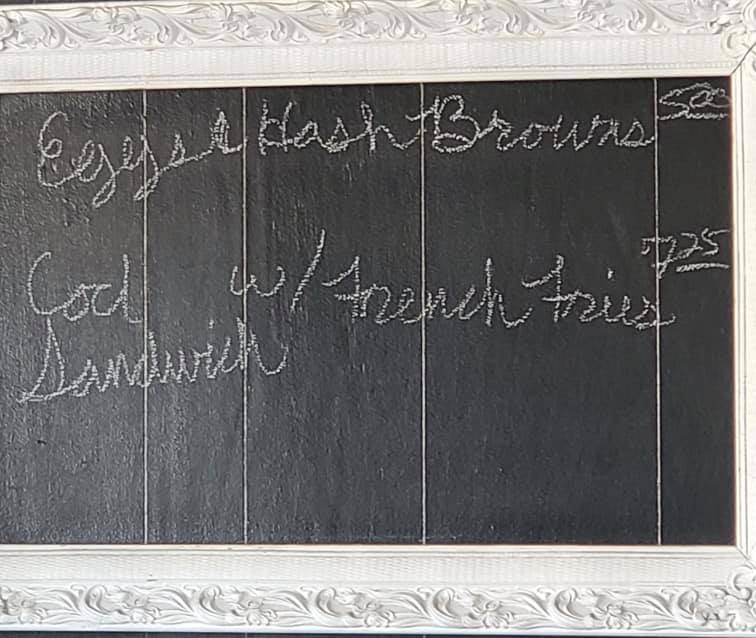 Eggs & Hash Browns 5.00
Cod w/ French Fries 7.25
Sandwich